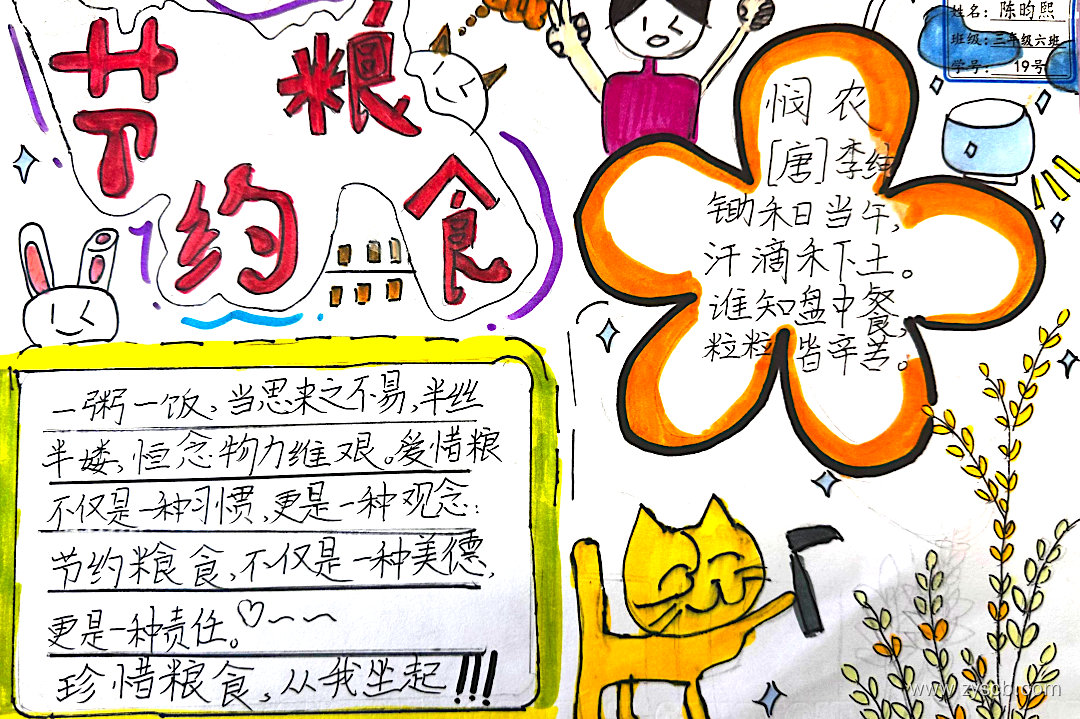 节约粮食
姓名：陈昀熙
班级：三年级六班
学号：19号
悯农
[唐]李绅
锄禾日当午，
汗滴禾下土。
谁知盘中餐，
粒粒皆辛苦。
一粥一饭，当思来之不易，半丝
半缕，恒念物力维艰。爱惜粮
不仅是一种习惯，更是一种观念：
节约粮食，不仅是一种美德，
更是一种责任。
珍惜粮食，从我坐起!!!
www.zyscb.com